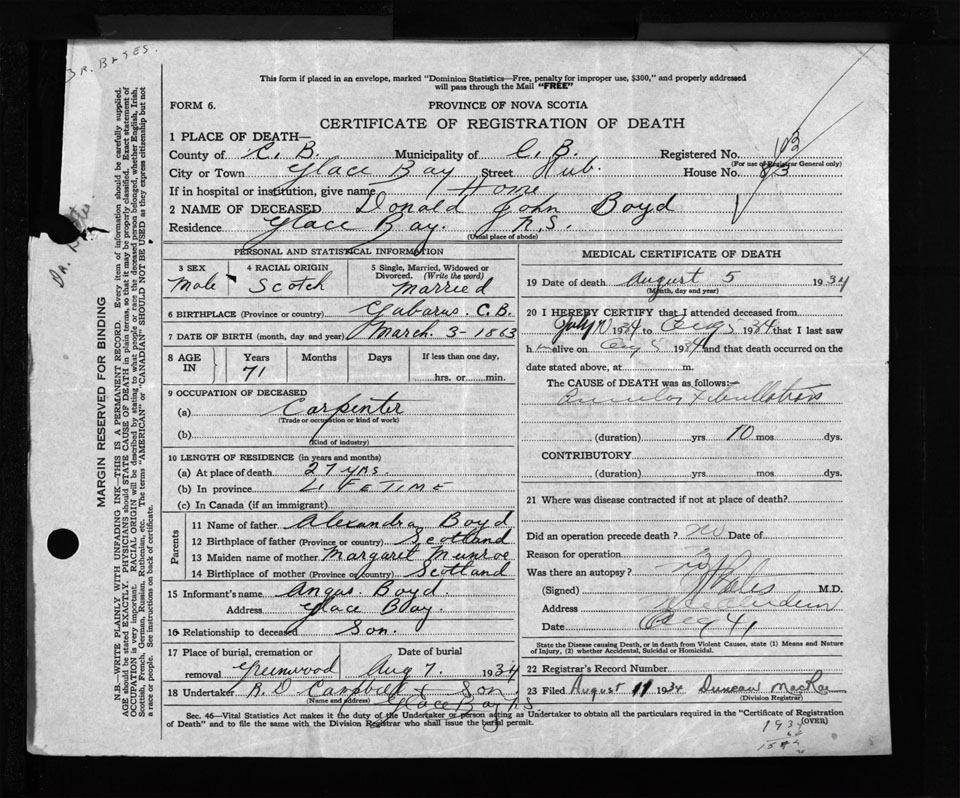 DR. BATES.
This form if placed in an envelope, marked "Dominion Statistics—Free, penalty for improper use, $300," and properly addressed
will pass through the Mail "FREE"
FORM 6.
PROVINCE OF NOVA SCOTIA
CERTIFICATE OF REGISTRATION OF DEATH
1 PLACE OF DEATH—
County of C. B. Municipality of C. B. Registered No.
(For use of Registrar General only)
City or Town Glace Bay Street Hub. House No.
If in hospital or institution, give name Home
2 NAME OF DECEASED Donald John Boyd
Residence Glace Bay. N.S.
(Usual place of abode)
PERSONAL AND STATISTICAL INFORMATION
3 SEX Male
4 RACIAL ORIGIN Scotch
5 Single, Married, Widowed or Divorced. (Write the word) Married
6 BIRTHPLACE (Province or country) Gabarus. C.B.
7 DATE OF BIRTH (month, day and year) March. 3-1863
8 AGE IN Years Months Days If less than one day,
71 hrs. or min.
9 OCCUPATION OF DECEASED
(a) Carpenter
(Trade or occupation or kind of work)
(b)
(Kind of industry)
10 LENGTH OF RESIDENCE (in years and months)
(a) At place of death 27 yrs.
(b) In province LIFETIME
(c) In Canada (if an immigrant)
Parents
11 Name of father Alexandra Boyd
12 Birthplace of father (Province or country) Scotland
13 Maiden name of mother Margaret Munroe
14 Birthplace of mother (Province or country) Scotland
15 Informant's name Angus Boyd.
Address Glace Bay.
16 Relationship to deceased Son.
17 Place of burial, cremation or removal Greenwood
Date of burial Aug 7. 1934
18 Undertaker R. D. Campbell & Son
(Name and address) Glace Bay N.S
MEDICAL CERTIFICATE OF DEATH
19 Date of death August 5 1934
(Month, day and year)
20 I HEREBY CERTIFY that I attended deceased from
July 1934 to Aug 5 1934 that I last saw
h alive on Aug 5 1934 and that death occurred on the
date stated above, at m.
The CAUSE of DEATH was as follows:—
(duration) yrs 10 mos. dys.
CONTRIBUTORY
(duration) yrs. mos. dys.
21 Where was disease contracted if not at place of death?
Did an operation precede death? no Date of
Reason for operation
Was there an autopsy? no
(Signed) Bates M.D.
Address
Date Aug
State the Disease causing Death, or in death from Violent Causes, state (1) Means and Nature
of Injury, (2) whether Accidental, Suicidal or Homicidal.
22 Registrar's Record Number
23 Filed August 11 1934 Duncan MacRae
(Division Registrar)
Sec. 46—Vital Statistics Act makes it the duty of the Undertaker or person acting as Undertaker to obtain all the particulars required in the "Certificate of Registration
of Death" and to file the same with the Division Registrar who shall issue the burial permit.
(OVER)
MARGIN RESERVED FOR BINDING
N.B.—WRITE PLAINLY WITH UNFADING INK—THIS IS A PERMANENT RECORD. Every item of information should be carefully supplied.
AGE should be stated EXACTLY. PHYSICIANS should STATE CAUSE OF DEATH in plain terms, so that it may be properly classified. Exact statement of
OCCUPATION is very important. RACIAL ORIGIN will be described by stating to what people or race the deceased person belonged, whether English, Irish,
Scottish, French, German, Russian, Ruthenian, etc. The terms "AMERICAN" or "CANADIAN" SHOULD NOT BE USED as they express citizenship but not
a race or people. See instructions on back of certificate.